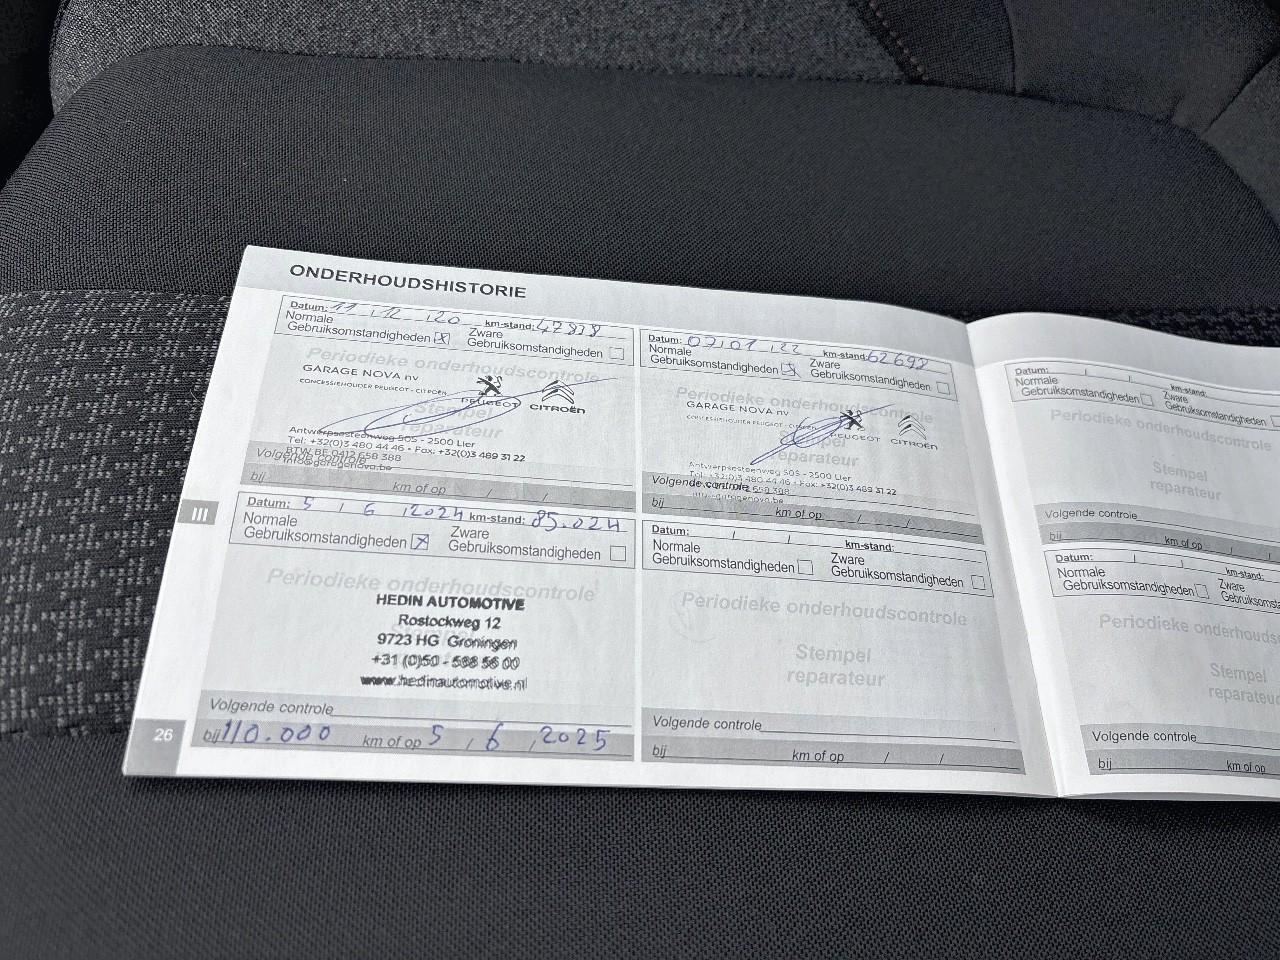 ONDERHOUDSHISTORIE
Datum: 11 12 20 km-stand: 47838
Normale
Gebruiksomstandigheden X Zware
Gebruiksomstandigheden
Periodieke onderhoudscontrole
GARAGE NOVA nv
CONCESSIEHOUDER PEUGEOT - CITROËN
PEUGEOT CITROËN
Stempel
reparateur
Antwerpsesteenweg 505 - 2500 Lier
Tel: +32(0)3 480 44 46 • Fax: +32(0)3 489 31 22
BTW BE 0412 658 388
info@garagenova.be
Volgende controle
bij km of op / /
Datum: 07 01 22 km-stand: 62692
Normale
Gebruiksomstandigheden X Zware
Gebruiksomstandigheden
Periodieke onderhoudscontrole
GARAGE NOVA nv
CONCESSIEHOUDER PEUGEOT - CITROËN
PEUGEOT CITROËN
Stempel
reparateur
Antwerpsesteenweg 505 - 2500 Lier
Tel: +32(0)3 480 44 46 • Fax: +32(0)3 489 31 22
Volgende controle
bij km of op / /
III
Datum: 5 / 6 / 2024 km-stand: 85.024
Normale
Gebruiksomstandigheden X Zware
Gebruiksomstandigheden
Periodieke onderhoudscontrole
HEDIN AUTOMOTIVE
Rostockweg 12
9723 HG Groningen
+31 (0)50 - 588 56 00
www.hedinautomotive.nl
Volgende controle
bij 110.000 km of op 5 / 6 / 2025
26
Datum: / / km-stand:
Normale
Gebruiksomstandigheden Zware
Gebruiksomstandigheden
Periodieke onderhoudscontrole
Stempel
reparateur
Volgende controle
bij km of op / /
Datum: / / km-stand:
Normale
Gebruiksomstandigheden Zware
Gebruiksomstandigheden
Periodieke onderhoudscontrole
Stempel
reparateur
Volgende controle
bij km of op / /
Datum: / / km-stand:
Normale
Gebruiksomstandigheden Zware
Periodieke
Stempel
Volgende controle
bij km of op